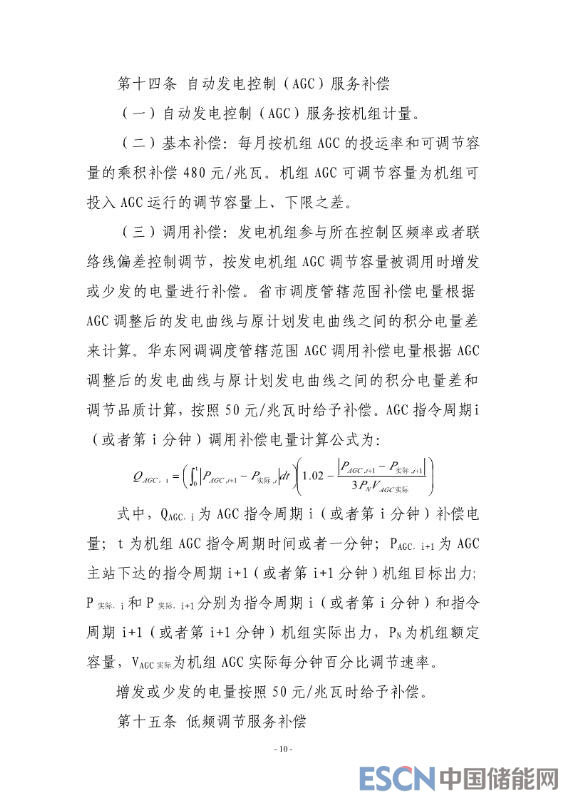 第十四条 自动发电控制（AGC）服务补偿
（一）自动发电控制（AGC）服务按机组计量。
（二）基本补偿：每月按机组 AGC 的投运率和可调节容
量的乘积补偿 480 元/兆瓦。机组 AGC 可调节容量为机组可
投入 AGC 运行的调节容量上、下限之差。
（三）调用补偿：发电机组参与所在控制区频率或者联
络线偏差控制调节，按发电机组 AGC 调节容量被调用时增发
或少发的电量进行补偿。省市调度管辖范围补偿电量根据
AGC 调整后的发电曲线与原计划发电曲线之间的积分电量差
来计算。华东网调调度管辖范围 AGC 调用补偿电量根据 AGC
调整后的发电曲线与原计划发电曲线之间的积分电量差和
调节品质计算，按照 50 元/兆瓦时给予补偿。AGC 指令周期 i
（或者第 i 分钟）调用补偿电量计算公式为：
Q_{AGC，i} = (∫_0^t |P_{AGC,i+1} − P_{实际,i}| dt)(1.02 − |P_{AGC,i+1} − P_{实际,i+1}| / 3P_N V_{AGC实际})
式中，Q_{AGC，i} 为 AGC 指令周期 i（或者第 i 分钟）补偿电
量；t 为机组 AGC 指令周期时间或者一分钟；P_{AGC，i+1} 为 AGC
主站下达的指令周期 i+1（或者第 i+1 分钟）机组目标出力；
P_{实际，i} 和 P_{实际，i+1} 分别为指令周期 i（或者第 i 分钟）和指令
周期 i+1（或者第 i+1 分钟）机组实际出力，P_N 为机组额定
容量，V_{AGC实际} 为机组 AGC 实际每分钟百分比调节速率。
增发或少发的电量按照 50 元/兆瓦时给予补偿。
第十五条 低频调节服务补偿
- 10 -
ESCN 中国储能网